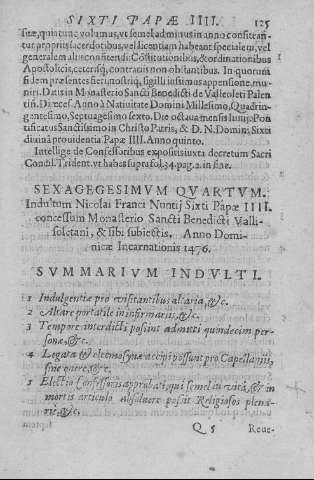 SIXTI PAPÆ IIII. 125
suæ, quia tunc volumus, vt semel admissus in anno confiteantur
propriis sacerdotibus, vel licentiam habeant specialem, vel
generalem alii confitendi: Cõstitutionibus, & ordinationibus
Apostolicis, ceterisq; contrariis non obstantibus. In quorum
fidem præsentes fieri, nostriq; sigilli iussimus appensione muniri.
Datis in Monasterio Sancti Benedicti de Valleoleti Palentiñ.
Diœces. Anno à Natiuitate Domini Millesimo, Quadringentesimo,
Septuagesimo sexto. Die octaua mensis Iunij: Pontificatus
Sanctissimo in Christo Patris, & D. N. Domini, Sixti
diuina prouidentia Papæ IIII. Anno quinto.
Intellige de Confessoribus expositis iuxta decretum Sacri
Concil. Trident. vt habes supra fol. 34. pag. 2. in fine.
SEXAGEGESIMVM QVARTVM.
Indultum Nicolai Franci Nuntij Sixti Papæ IIII.
concessum Monasterio Sancti Benedicti Vallisoletani,
& sibi subiectis. Anno Dominicæ
Incarnationis 1476.
SVMMARIVM INDVLTI.
1 Indulgentiæ pro visitantibus altaria, &c.
2 Altare portatile in infirmariis, &c.
3 Tempore interdicti possint admitti quindecim personæ,
&c.
4 Legata & eleemosynæ accipi possunt pro Capellaniis,
sine onere, &c.
5 Electio Confessoris approbati, qui semel in vita, & in
mortis articulo absoluere possit Religiosos plenarie,
&c.
Q 5 Reue-